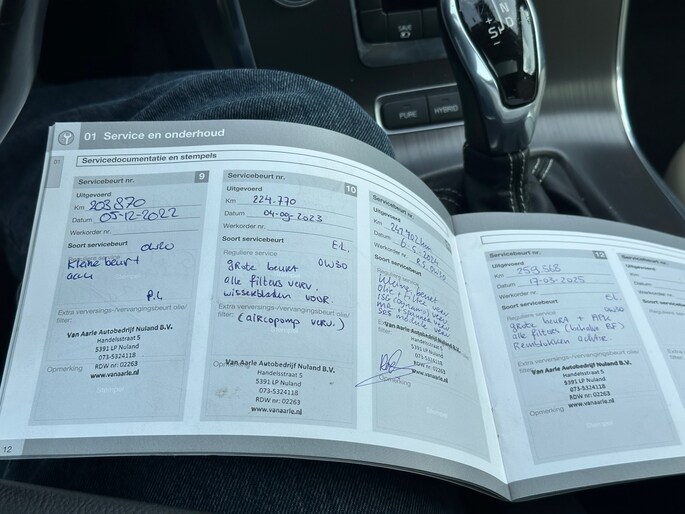 N
+
SAVE
PURE
HYBRID
01 Service en onderhoud
01
Servicedocumentatie en stempels
Servicebeurt nr. 9
Uitgevoerd
Km 203870
Datum 05-12-2022
Werkorder nr.
Soort servicebeurt 0W20
Reguliere service
Kleine beurt
P.L.
Extra verversings-/vervangingsbeurt olie/
filter:
Van Aarle Autobedrijf Nuland B.V.
Handelsstraat 5
5391 LP Nuland
Opmerking 073-5324118
RDW nr: 02263
www.vanaarle.nl
12
Servicebeurt nr. 10
Uitgevoerd
Km 224.770
Datum 04-09-2023
Werkorder nr.
Soort servicebeurt E.L.
Reguliere service 0W30
grote beurt
alle filters verv.
wisserbladen voor.
Extra verversings-/vervangingsbeurt olie/
filter: (aircopomp verv.)
Van Aarle Autobedrijf Nuland B.V.
Handelsstraat 5
5391 LP Nuland
Opmerking 073-5324118
RDW nr: 02263
www.vanaarle.nl
Servicebeurt nr.
Uitgevoerd
Km 241.902 km
Datum 6-5-2024
Werkorder nr.
Soort servicebeurt
Reguliere service
Kleine beurt
Olie + filter
Van Aarle Autobedrijf Nuland B.V.
Handelsstraat 5
5391 LP Nuland
073-5324118
RDW nr: 02263
www.vanaarle.nl
Opmerking
Servicebeurt nr. 12
Uitgevoerd
Km 259.568
Datum 17-03-2025
Werkorder nr.
Soort servicebeurt E.L.
Reguliere service 0W30
grote beurt + APK
alle filters (behalve BF)
Remblokken achter.
Extra verversings-/vervangingsbeurt olie/
filter:
Van Aarle Autobedrijf Nuland B.V.
Handelsstraat 5
5391 LP Nuland
073-5324118
Opmerking RDW nr: 02263
www.vanaarle.nl
Servicebeurt nr.
Uitgevoerd
Km
Datum
Werkorder
Soort se
Regulie
Extra ver
filter:
Opm